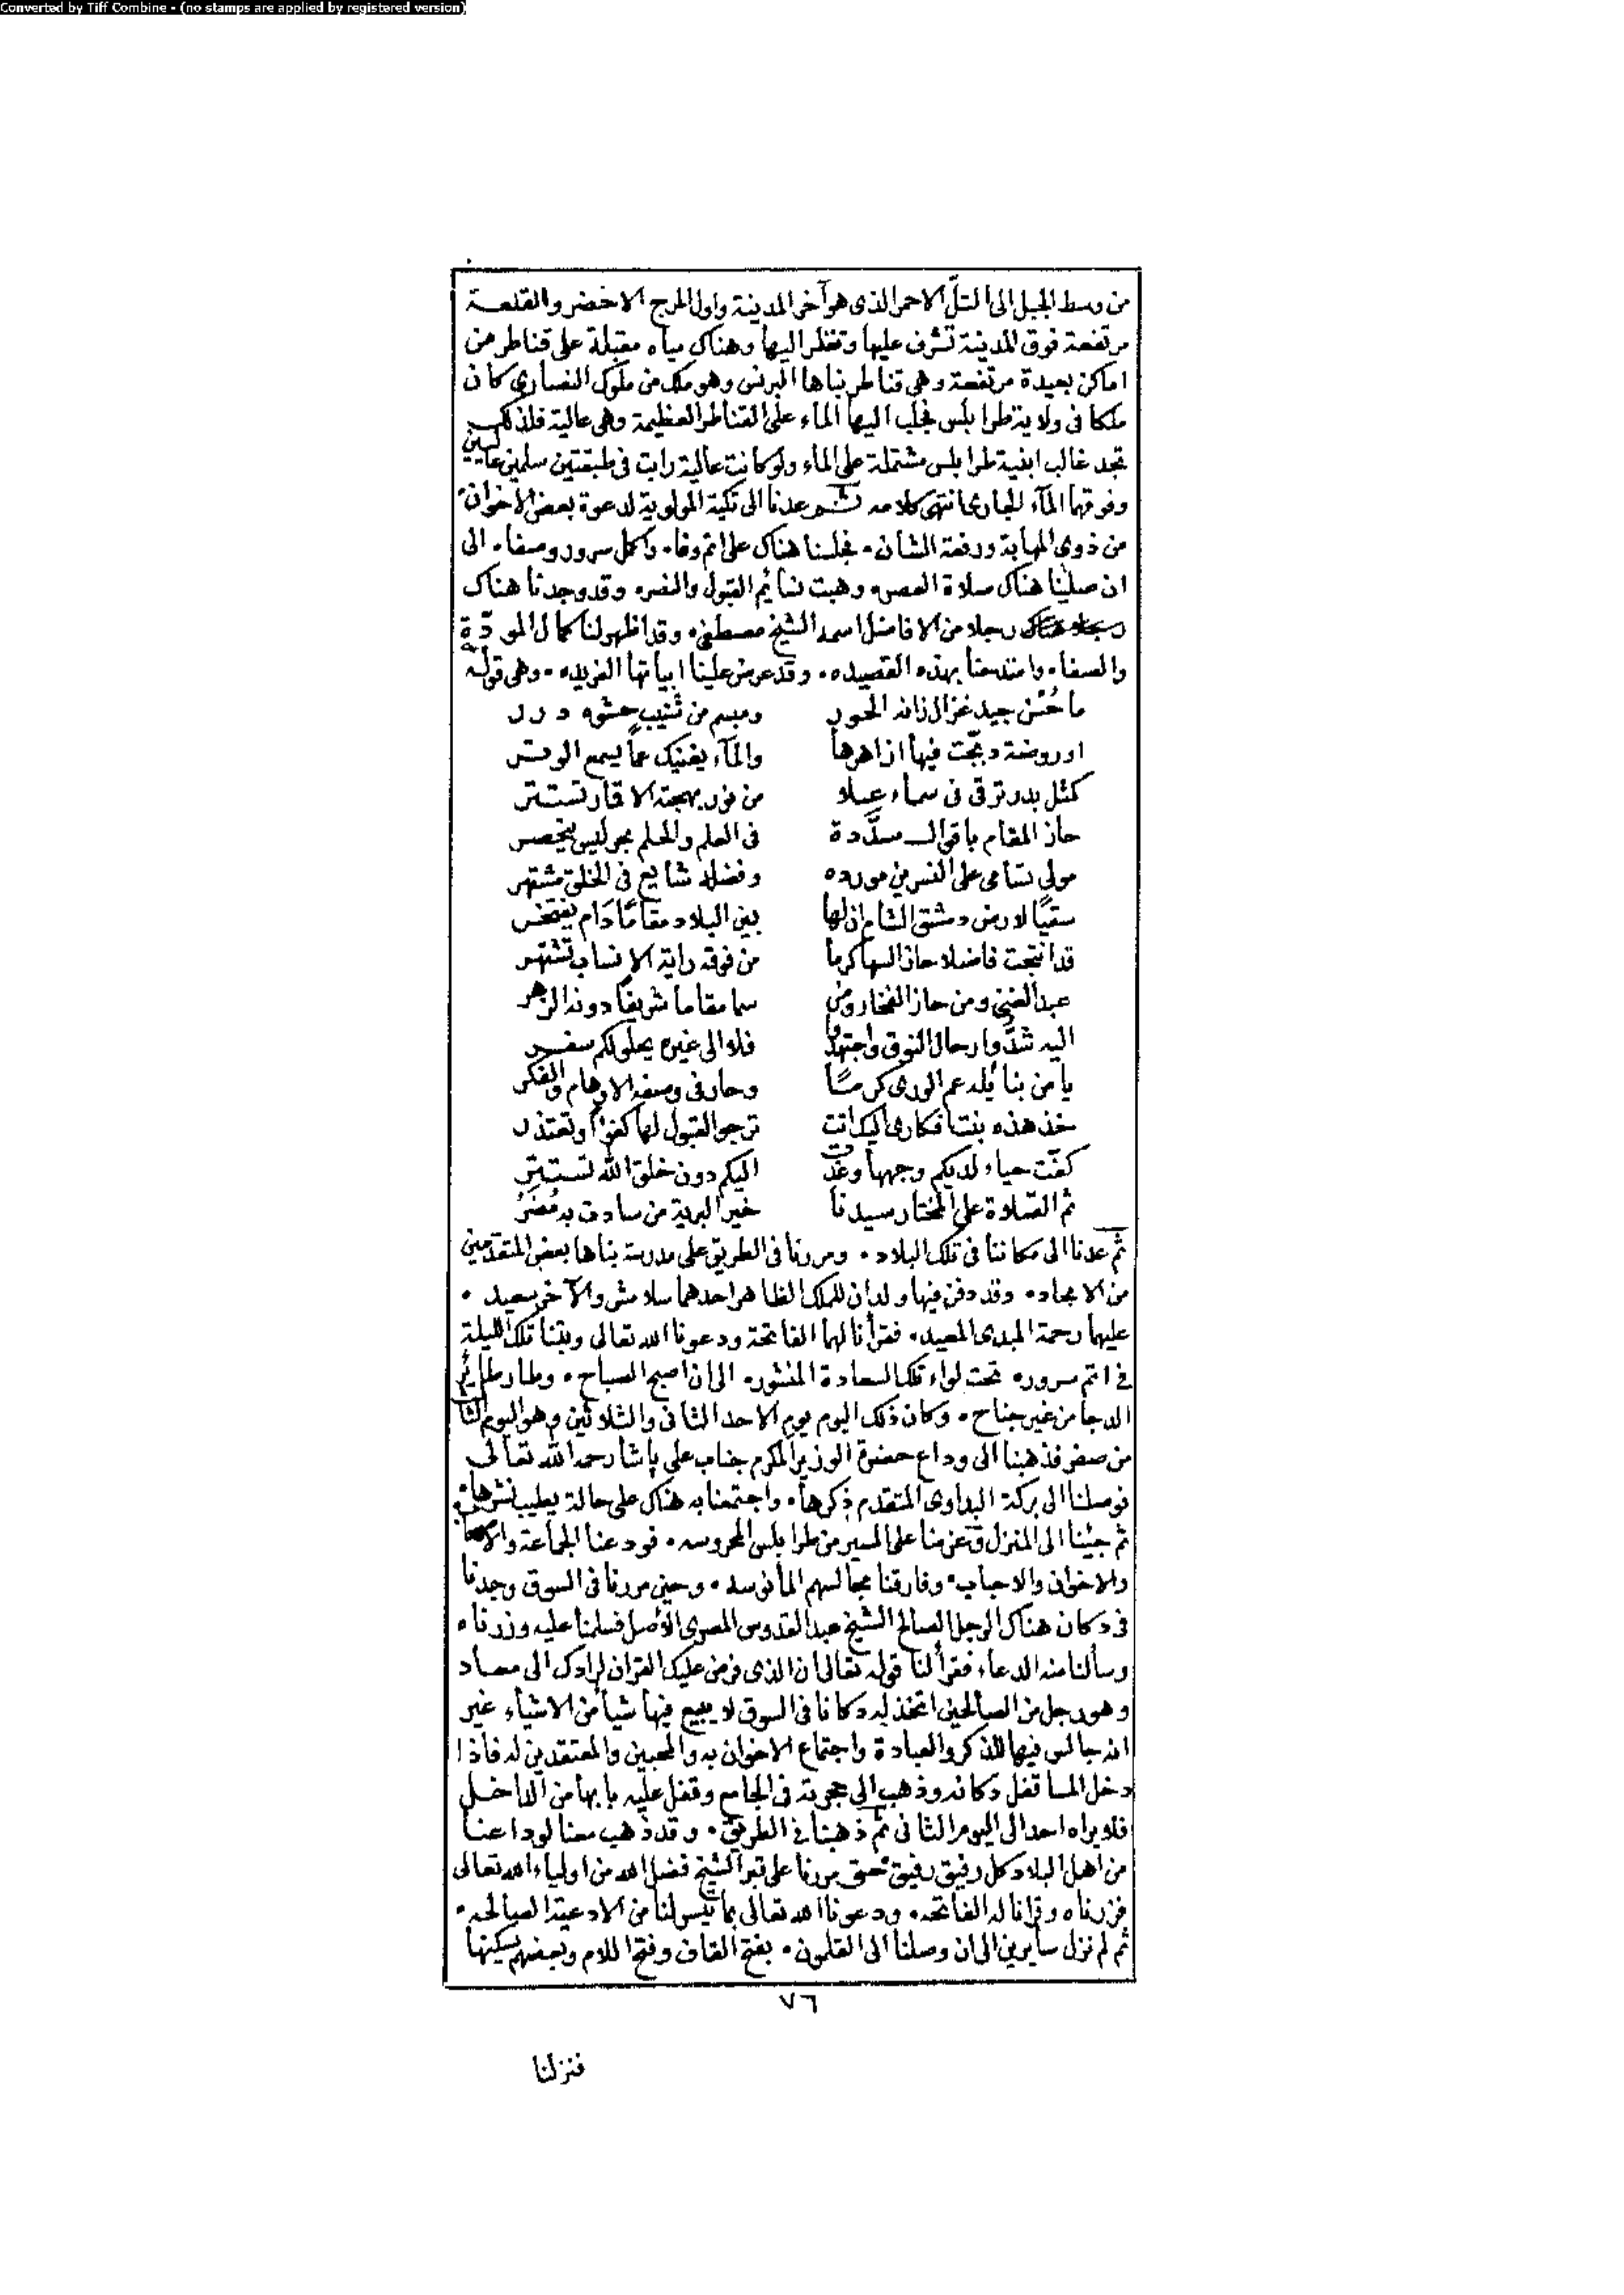 Converted by Tiff Combine - (no stamps are applied by registered version)
من وسط الجبل الى التلّ الاحمر الذى هو آخر المدينة واول المرج الاخضر والقلعة
مرتفعة فوق المدينة تشرف عليها وتنظر اليها وهناك مياه مقبلة على قناطر من
اماكن بعيدة مرتفعة وهى قناطر بناها البرنس وهو ملك من ملوك النصارى كان
ملكا فى ولاية طرابلس فجلب اليها الماء على القناطر العظيمة وهى عالية فلذلك
تجد غالب ابنية طرابلس مشتملة على الماء ولو كانت عالية رايت فى طبقتين سلمين عاليين
وفوقها المآء الجارى انتهى كلامه ثم عدنا الى تكية المولوية لدعوة بعض الاخوان
من ذوى المهابة ورفعة الشان. فجلسنا هناك على اتم وفا. واكمل سرور وصفا. الى
ان صلينا هناك صلاة العصر. وهبت نسائم القبول والنصر. وقد وجدنا هناك
رجلا من الافاضل اسمه الشيخ مصطفى. وقد اظهر لنا كمال المودّة
والصفا. وامتدحنا بهذه القصيده. وقد عرض علينا ابياتها الفريده. وهى قوله
ما حُسْن جيد غزال زانه الحور ومبسم من شنيب حشوه درر
او روضة دبّجت فيها ازاهرها والمآء يغنيك عما يسمع الوتر
كمثل بدر ترقى فى سماء علا من نور بهجته الاقمار تستتر
حاز المقام باقوال مسدَّدة فى العلم والحلم بحر ليس ينحصر
مولى تسامى على النسرين مورده وفضله شايع فى الخلق مشتهر
سقيًا لارض دمشق الشام ان لها بين البلاد مقامًا دَام يفتخر
قد انتجت فاضلا حاز السها كرما من فوقه راية الانساب تشتهر
عبد الغنى ومن حاز الفخار ومن سما مقاما شريفًا دونه الزهر
اليه شدّوا رحال النوق واجتهدوا فلا الى غيره يحلو لكم سفر
يا من بنايله عم الورى كرمًا وحار فى وصفه الاوهام والفكر
خذ هذه بنت افكارى اليك اتت ترجو القبول لها كفؤًا وتعتذر
كفّت حياء لديكم وجهها وغدت اليكم دون خلق الله تستتر
ثم الصّلاة على المختار سيدنا خير البرية من سادت به مُضَرُ
ثم عدنا الى مكاننا فى تلك البلاد. ومررنا فى الطريق على مدرسة بناها بعض المتقدّمين
من الامجاد. وقد دفن فيها ولدان للملك الظاهر احدهما سلامش والآخر سعيد.
عليهما رحمة المبدى المعيد. فقرأنا لهما الفاتحة ودعونا الله تعالى وبتنا تلك الليلة
فى اتم سرور. تحت لواء تلك السعادة المنشور. الى ان اصبح الصباح. وطار طائر
الدجا من غير جناح. وكان ذلك اليوم يوم الاحد الثانى والثلاثين وهو اليوم
من صفر فذهبنا الى وداع حضرة الوزير المكرم جناب على باشا رحمه الله تعالى
فوصلنا الى بركة البداوى المتقدم ذكرها. واجتمعنا به هناك على حالة يطيب نشرها.
ثم جئنا الى المنزل وعزمنا على المسير من طرابلس المحروسه. فودعنا الجماعة
والاخوان والاحباب. وفارقنا مجالسهم المأنوسه. وحين مررنا فى السوق وجدنا
فى دكان هناك الرجل الصالح الشيخ عبد القدوس المصرى الاصل فسلمنا عليه وزرناه
وسألنا منه الدعاء فقرأ لنا قوله تعالى ان الذى فرض عليك القرآن لرادك الى معاد
وهو رجل من الصالحين اتخذ له دكانا فى السوق لا يبيع فيها شيأ من الاشياء غير
انه جالس فيها للذكر والعبادة واجتماع الاخوان به والمحبين والمعتقدين له فاذا
دخل المسا قفل دكانه وذهب الى حجرته فى الجامع وقفل عليه بابها من الداخل
فلا يراه احد الى اليوم الثانى ثم ذهبنا فى الطريق. وقد ذهب معنا لوداعنا
من اهل البلاد كل رفيق رفيق حتى مررنا على قبر الشيخ فضل الله من اولياء الله تعالى
فزرناه وقرانا له الفاتحه. ودعونا الله تعالى بما تيسر لنا من الادعية الصالحه.
ثم لم نزل سايرين الى ان وصلنا الى القلمون. بفتح القاف وفتح اللام وبعضهم يسكنها
٧٦
فنزلنا